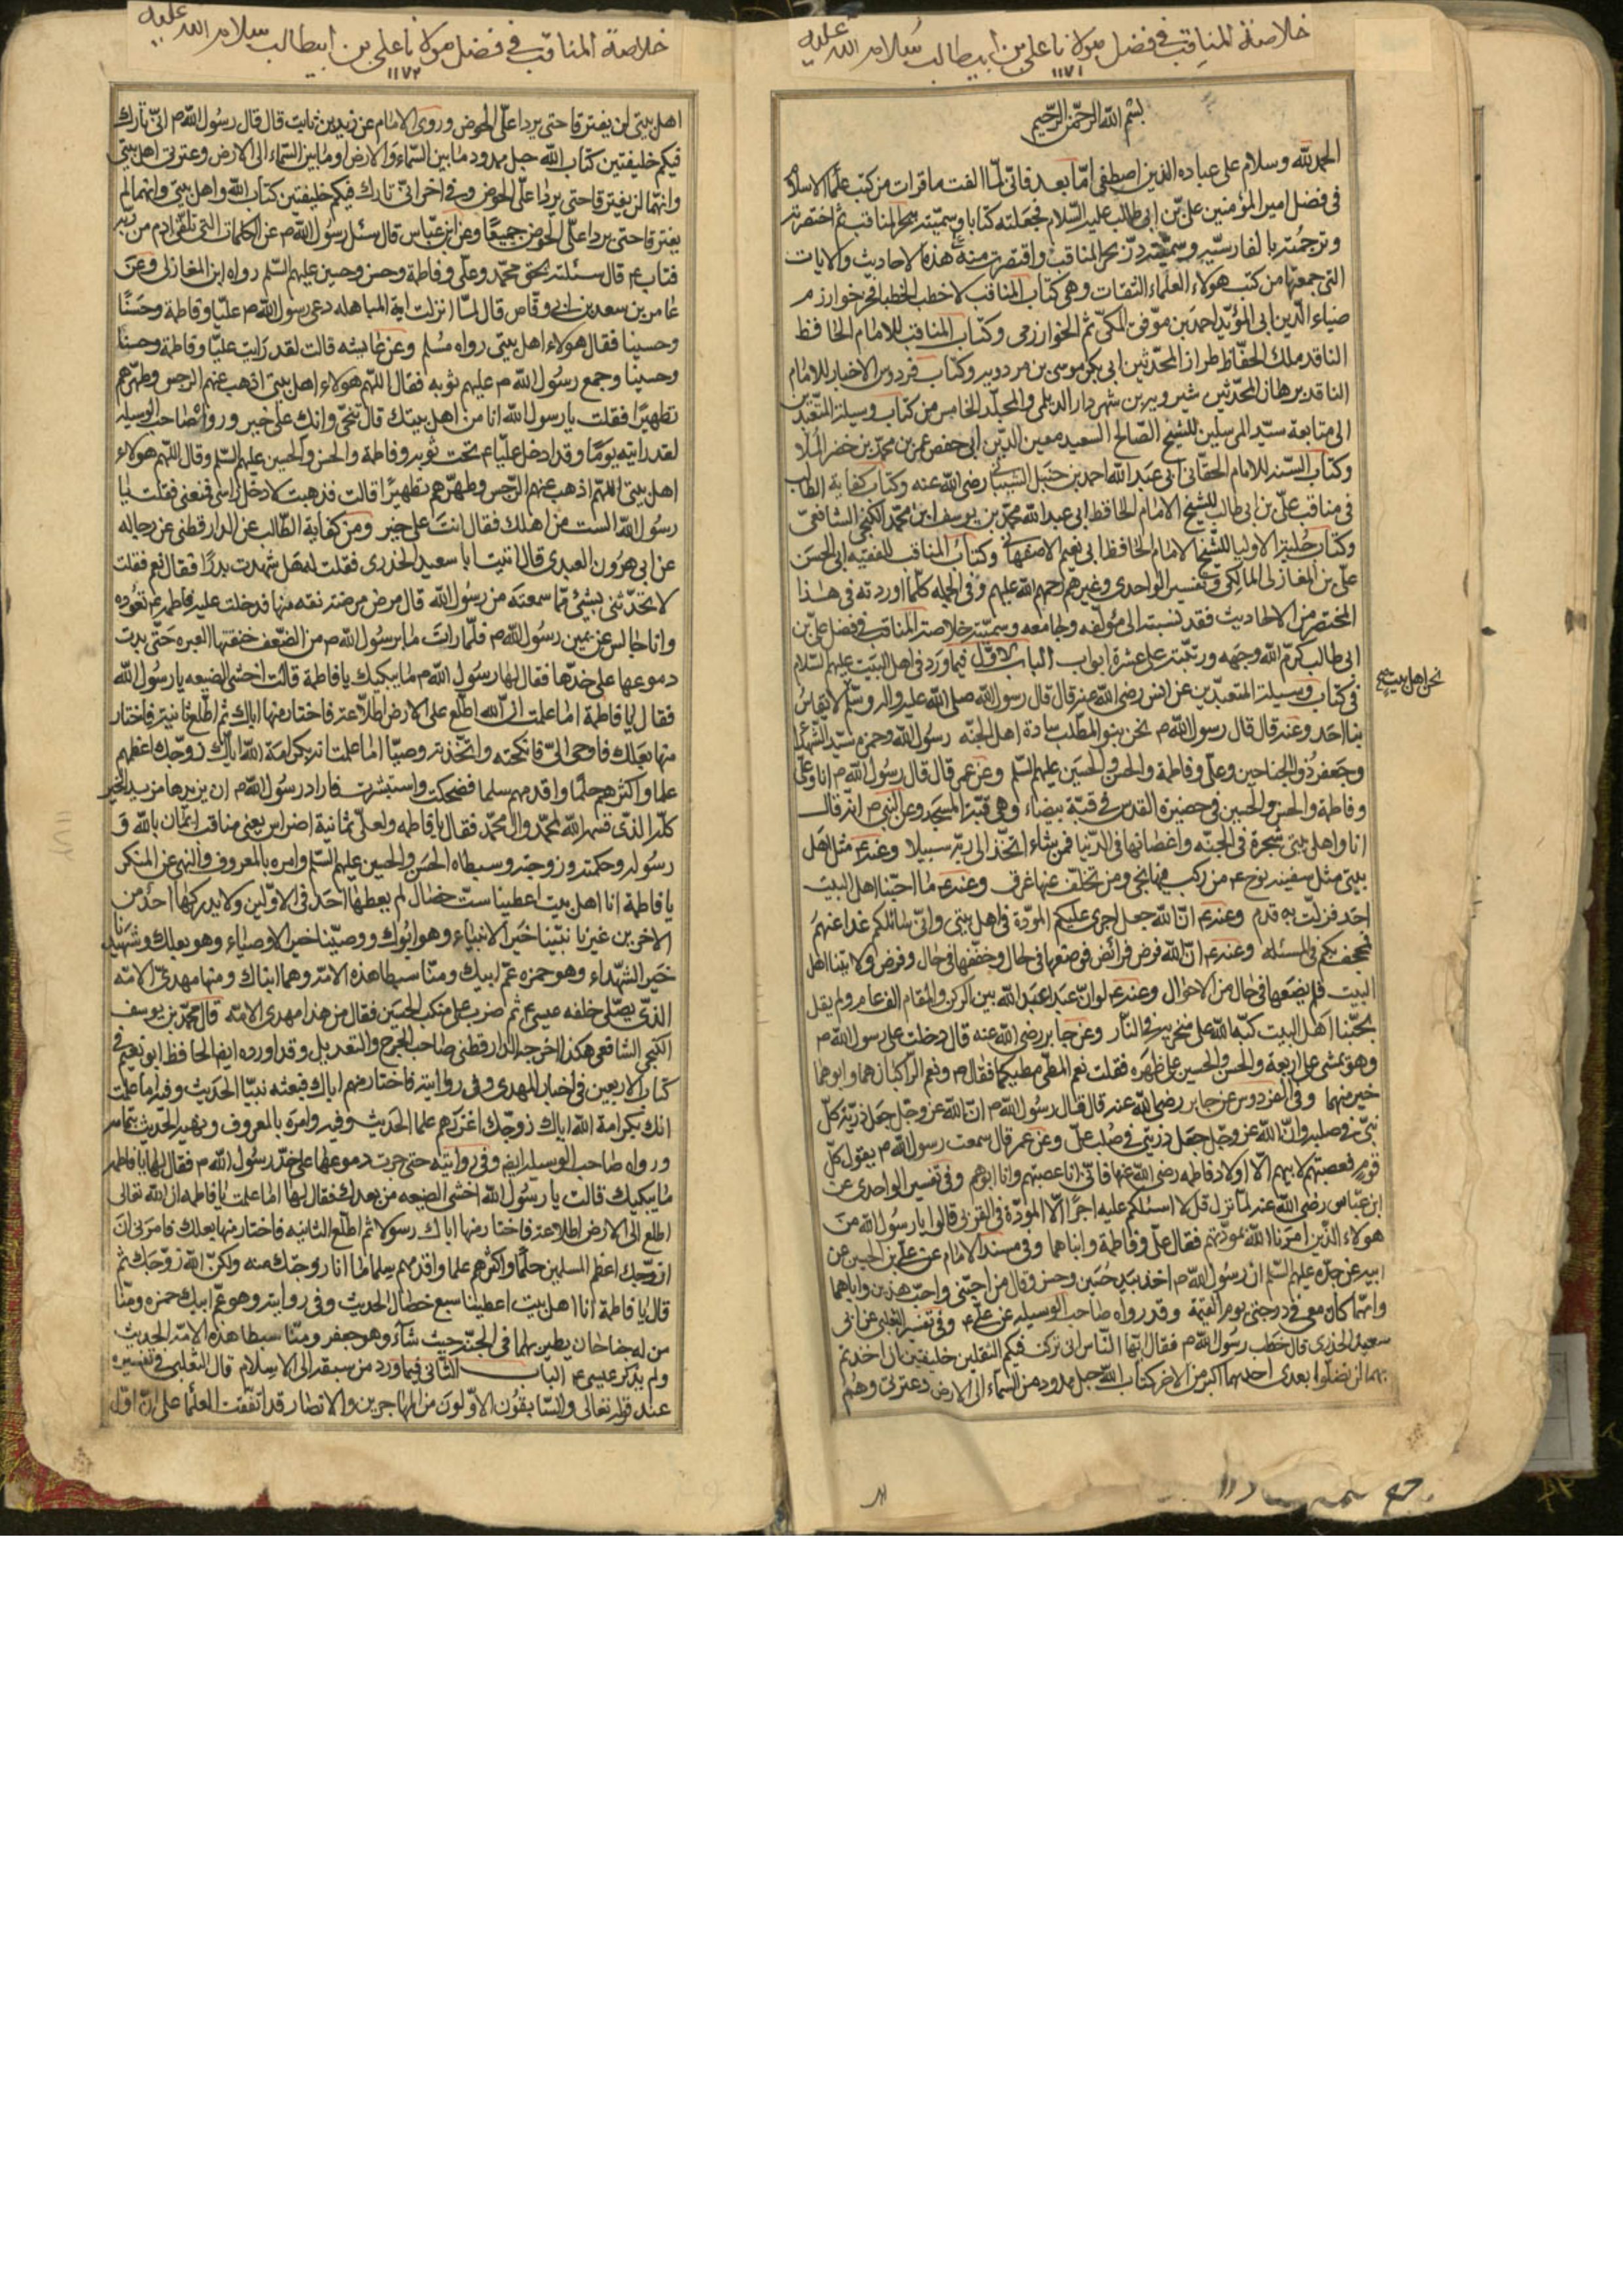 خلاصة المناقب في فضل مولانا علي بن ابيطالب سلام الله عليه
١١٧١
بسم الله الرحمن الرحيم
الحمد لله وسلام على عباده الذين اصطفى امّا بعد فانّى لمّا الفت ما قرات من كتب علما الاسلام
فى فضل امير المؤمنين علىّ بن ابى طالب عليه السّلام فجعلته كتابا وسميّته بحر المناقب ثم اختصرته
وترجمته بالفارسيّه وسميّته درّ بحر المناقب واقتصرت منه هذه الاحاديث والايات
التى جمعتها من كتب هولاء العلماء الثقات وهى كتاب المناقب لاخطب الخطبا فخر خوارزم
ضياء الدّين ابى المؤيّد احمد بن موفق المكّى ثم الخوارزمى وكتاب المناقب للامام الحافظ
الناقد ملك الحفّاظ طراز المحدّثين ابى بكر موسى بن مردويه وكتاب فردوس الاخبار للامام
الناقد برهان المحدّثين شيرويه بن شهردار الديلمى والمجلّد الخامس من كتاب وسيلة المتعبّدين
الى متابعة سيّد المرسلين للشيخ الصّالح السعيد معين الدّين ابى حفص عمر بن محمّد بن خضر الملا
وكتاب السّند للامام الحقّانى ابى عبد الله احمد بن حنبل الشيبانى رضى الله عنه وكتاب كفاية الطالب
فى مناقب علىّ بن ابى طالب للشيخ الامام الحافظ ابى عبد الله محمّد بن يوسف ابن محمّد الكنجى الشافعى
وكتاب حلية الاوليا للشيخ الامام الحافظ ابى نعيم الاصفهانى وكتاب المناقب للفقيه ابى الحسن
علىّ بن المغازلى المالكى وتفسير الواحدى وغيرهم رحمهم الله عليهم وفى الجمله كلّما اوردته فى هذا
المختصر من الاحاديث فقد نسبته الى مؤلفه وجامعه وسميّته خلاصة المناقب فى فضل علىّ بن
ابى طالب كرّم الله وجهه ورتّبته على عشرة ابواب الباب الاوّل فيما ورد فى اهل البيت عليهم السّلام
فى كتاب وسيلة المتعبّدين عن انس رضى الله عنه قال قال رسول الله صلى الله عليه واله وسلّم لا يقاس
نحن اهل بيت
بنا احد وعنه قال قال رسول الله ص نحن بنو المطّلب سادة اهل الجنّه رسول الله وحمزه سيّد الشهدا
وجعفر ذو الجناحين وعلى وفاطمة والحسن والحسين عليهم السّلم وعن عمر قال قال رسول الله ص انا وعلى
وفاطمة والحسن والحسين فى حضيرة القدس فى قبّة بيضاء وهى قبّة المسجد وعن النبى ص انّه قال
انا واهل بيتى شجرة فى الجنّه واغصانها فى الدّنيا فمن شاء اتّخذ الى ربّه سبيلا وعنه ع مثل اهل
بيتى مثل سفينه نوح ع من ركب فيها نجى ومن تخلّف عنها غرق وعنه ع ما احبّنا اهل البيت
احد فزلّت به قدم وعنه ع انّ الله جعل اجرى عليكم المودّة فى اهل بيتى وانّى سائلكم غدا عنهم
فمجحف بكم فى المسئله وعنه ع انّ الله فرض فرائض فوضعها فى حال وخفّفها فى حال وفرض ولايتنا اهل
البيت فلم يضعها فى حال من الاحوال وعنه ع لو انّ عبدا عبد الله بين الركن والمقام الف عام ولم يقل
بحبّنا اهل البيت كبّه الله على منخريه فى النّار وعن جابر رضى الله عنه قال دخلت على رسول الله ص
وهو يمشى على اربعة والحسن والحسين على ظهره فقلت نعم المطىّ مطيكما فقال ص ونعم الراكبان هما وابوهما
خير منهما وفى الفردوس عن جابر رضى الله عنه قال قال رسول الله ص انّ الله عز وجلّ جعل ذريّة كلّ
نبىّ فى صلبه وانّ الله عز وجلّ جعل ذريّتى فى صلب علىّ وعن عمر قال سمعت رسول الله ص يقول كلّ
قوم فعصبتهم لابيهم الّا اولاد فاطمه رضى الله عنها فانّى انا عصبتهم وانا ابوهم وفى تفسير الواحدى عن
ابن عبّاس رضى الله عنه لمّا نزل قل لا اسئلكم عليه اجرا الّا المودّة فى القربى قالوا يا رسول الله من
هولاء الّذين امرنا الله بمودّتهم فقال علىّ وفاطمة وابناهما وفى مسند الامام عن علىّ بن الحسين عن
ابيه عن جدّه عليهم السّلم انّ رسول الله ص اخذ بيد حسين وحسن وقال من احبّنى واحبّ هذين واباهما
وامّهما كان معى فى درجتى يوم القيمة وقد رواه صاحب الوسيله عن علىّ ع وفى تفسير الثعلبى عن ابى
سعيد الخدرى قال خطب رسول الله ص فقال ايّها النّاس انّى تركت فيكم الثقلين خليفتين ان اخذتم
بهما لن تضلّوا بعدى احدهما اكبر من الاخر كتاب الله حبل ممدود من السّماء الى الارض وعترتى وهم
خلاصة المناقب في فضل مولانا علي بن ابيطالب سلام الله عليه
١١٧٢
اهل بيتى لن يفترقا حتى يردا علىّ الحوض وروى الامام عن زيد بن ثابت قال قال رسول الله ص انّى تارك
فيكم خليفتين كتاب الله حبل ممدود ما بين السّماء والارض او ما بين السّماء الى الارض وعترتى اهل بيتى
وانّهما لن يفترقا حتى يردا علىّ الحوض وفى اخر انّى تارك فيكم خليفتين كتاب الله واهل بيتى وانهما لم
يفترقا حتى يردا علىّ الحوض جميعًا وعن ابن عبّاس قال سئل رسول الله ص عن الكلمات التى تلقّى ادم من ربّه
فتاب ع قال سئله بحق محمّد وعلى وفاطمة وحسن وحسين عليهم السّلم رواه ابن المغازلى وعن
عامر بن سعد بن ابى وقّاص قال لمّا انزلت اية المباهله دعى رسول الله ص عليّا وفاطمة وحسنًا
وحسينا فقال هولاء اهل بيتى رواه مسلم وعن عايشه قالت لقد رايت عليّا وفاطمة وحسنا
وحسينا وجمع رسول الله ص عليهم ثوبه فقال اللّهم هولاء اهل بيتى اذهب عنهم الرجس وطهّرهم
تطهيرًا فقلت يا رسول الله انا من اهل بيتك قال تنحّى وانك على خير ورواه صاحب الوسيله
لقد رايته يومًا وقد ادخل عليّا ع تحت ثوبه وفاطمة والحسن والحسين عليهم السّلم وقال اللّهم هولاء
اهل بيتى اللّهم اذهب عنهم الرّجس وطهّرهم تطهيرًا قالت فذهبت لادخل راسى فمنعنى فقلت يا
رسول الله الست من اهلك فقال انت على خير ومن كفاية الطّالب عن الدارقطنى عن رجاله
عن ابى هرون العبدى قال اتيت ابا سعيد الخدرى فقلت له هل شهدت بدرًا فقال نعم فقلت
لا تحدّثنى بشئ ممّا سمعته من رسول الله قال مرض مرضة نقه منها فدخلت عليه فاطمه ع تعوده
وانا جالس عن يمين رسول الله ص فلمّا رات ما برسول الله ص من الضّعف خنقتها العبره حتى بدت
دموعها على خدّها فقال لها رسول الله ص ما يبكيك يا فاطمة قالت اخشى الضيعه يا رسول الله
فقال يا فاطمة اما علمت انّ الله اطّلع على الارض اطّلاعة فاختار منها اباك ثم اطّلع ثانية فاختار
منها بعلك فاوحى الىّ فانكحته واتّخذته وصيّا اما علمت انه بكرامة الله اياك زوّجك اعظمهم
علما واكثرهم حلمًا واقدمهم سلما فضحكت واستبشرت فاراد رسول الله ص ان يزيدها مزيد الخير
كلّه الذى قسمه الله لمحمّد وال محمّد فقال يا فاطمه ولعلىّ ثمانية اضراس يعنى مناقب ايمان بالله و
رسوله وحكمته وزوجته وسبطاه الحسن والحسين عليهم السّلم وامره بالمعروف والنهى عن المنكر
يا فاطمة انا اهل بيت اعطينا ست خصال لم يعطها احد فى الاوّلين ولا يدركها احد من
الاخرين غيرنا نبيّنا خير الانبياء وهو ابوك ووصيّنا خير الاوصياء وهو بعلك وشهيدنا
خير الشهداء وهو حمزه عمّ ابيك ومنّا سبطا هذه الامّة وهما ابناك ومنها مهدىّ الامّه
الذى يصلّى خلفه عيسى ع ثم ضرب على منكب الحسين فقال من هذا مهدى الامّه قال محمّد بن يوسف
الكنجى الشافعى هكذا اخرجه الدارقطنى صاحب الجرح والتعديل وقد اورده ايضا الحافظ ابو نعيم فى
كتاب الاربعين فى اخبار المهدى وفى رواية فاختار منهم اباك فبعثه نبيّا الحديث وفيه اما علمت
انك بكرامة الله اياك زوّجك اغزرهم علما الحديث وفيه وامره بالمعروف ونهيه الحديث بتمامه
ورواه صاحب الوسيله ايضا وفى روايته حتى جرت دموعها على خدّ رسول الله ص فقال لها يا فاطمه
ما يبكيك قالت يا رسول الله اخشى الضيعه من بعدك فقال لها اما علمت يا فاطمه ان الله تعالى
اطلع الى الارض اطلاعة فاختار منها اباك رسولا ثم اطّلع الثانيه فاختار منها بعلك فامرنى ان
ازوّجك اعظم المسلمين حلمًا واكثرهم علما واقدمهم سلما ما انا زوجتك منه ولكنّ الله زوّجك ثم
قال يا فاطمة انا اهل بيت اعطينا سبع خصال الحديث وفى رواية وهو عمّ ابيك حمزه ومنّا
من له جناحان يطير بهما فى الجنّة حيث شاء وهو جعفر ومنّا سبطا هذه الامّة الحديث
ولم يذكر عيسى ع الباب الثانى فيما ورد من سبقه الى الاسلام قال الثعلبى فى تفسيره
عند قوله تعالى والسّابقون الاوّلون من المهاجرين والانصار قد اتّفقت العلما على انّ اوّل